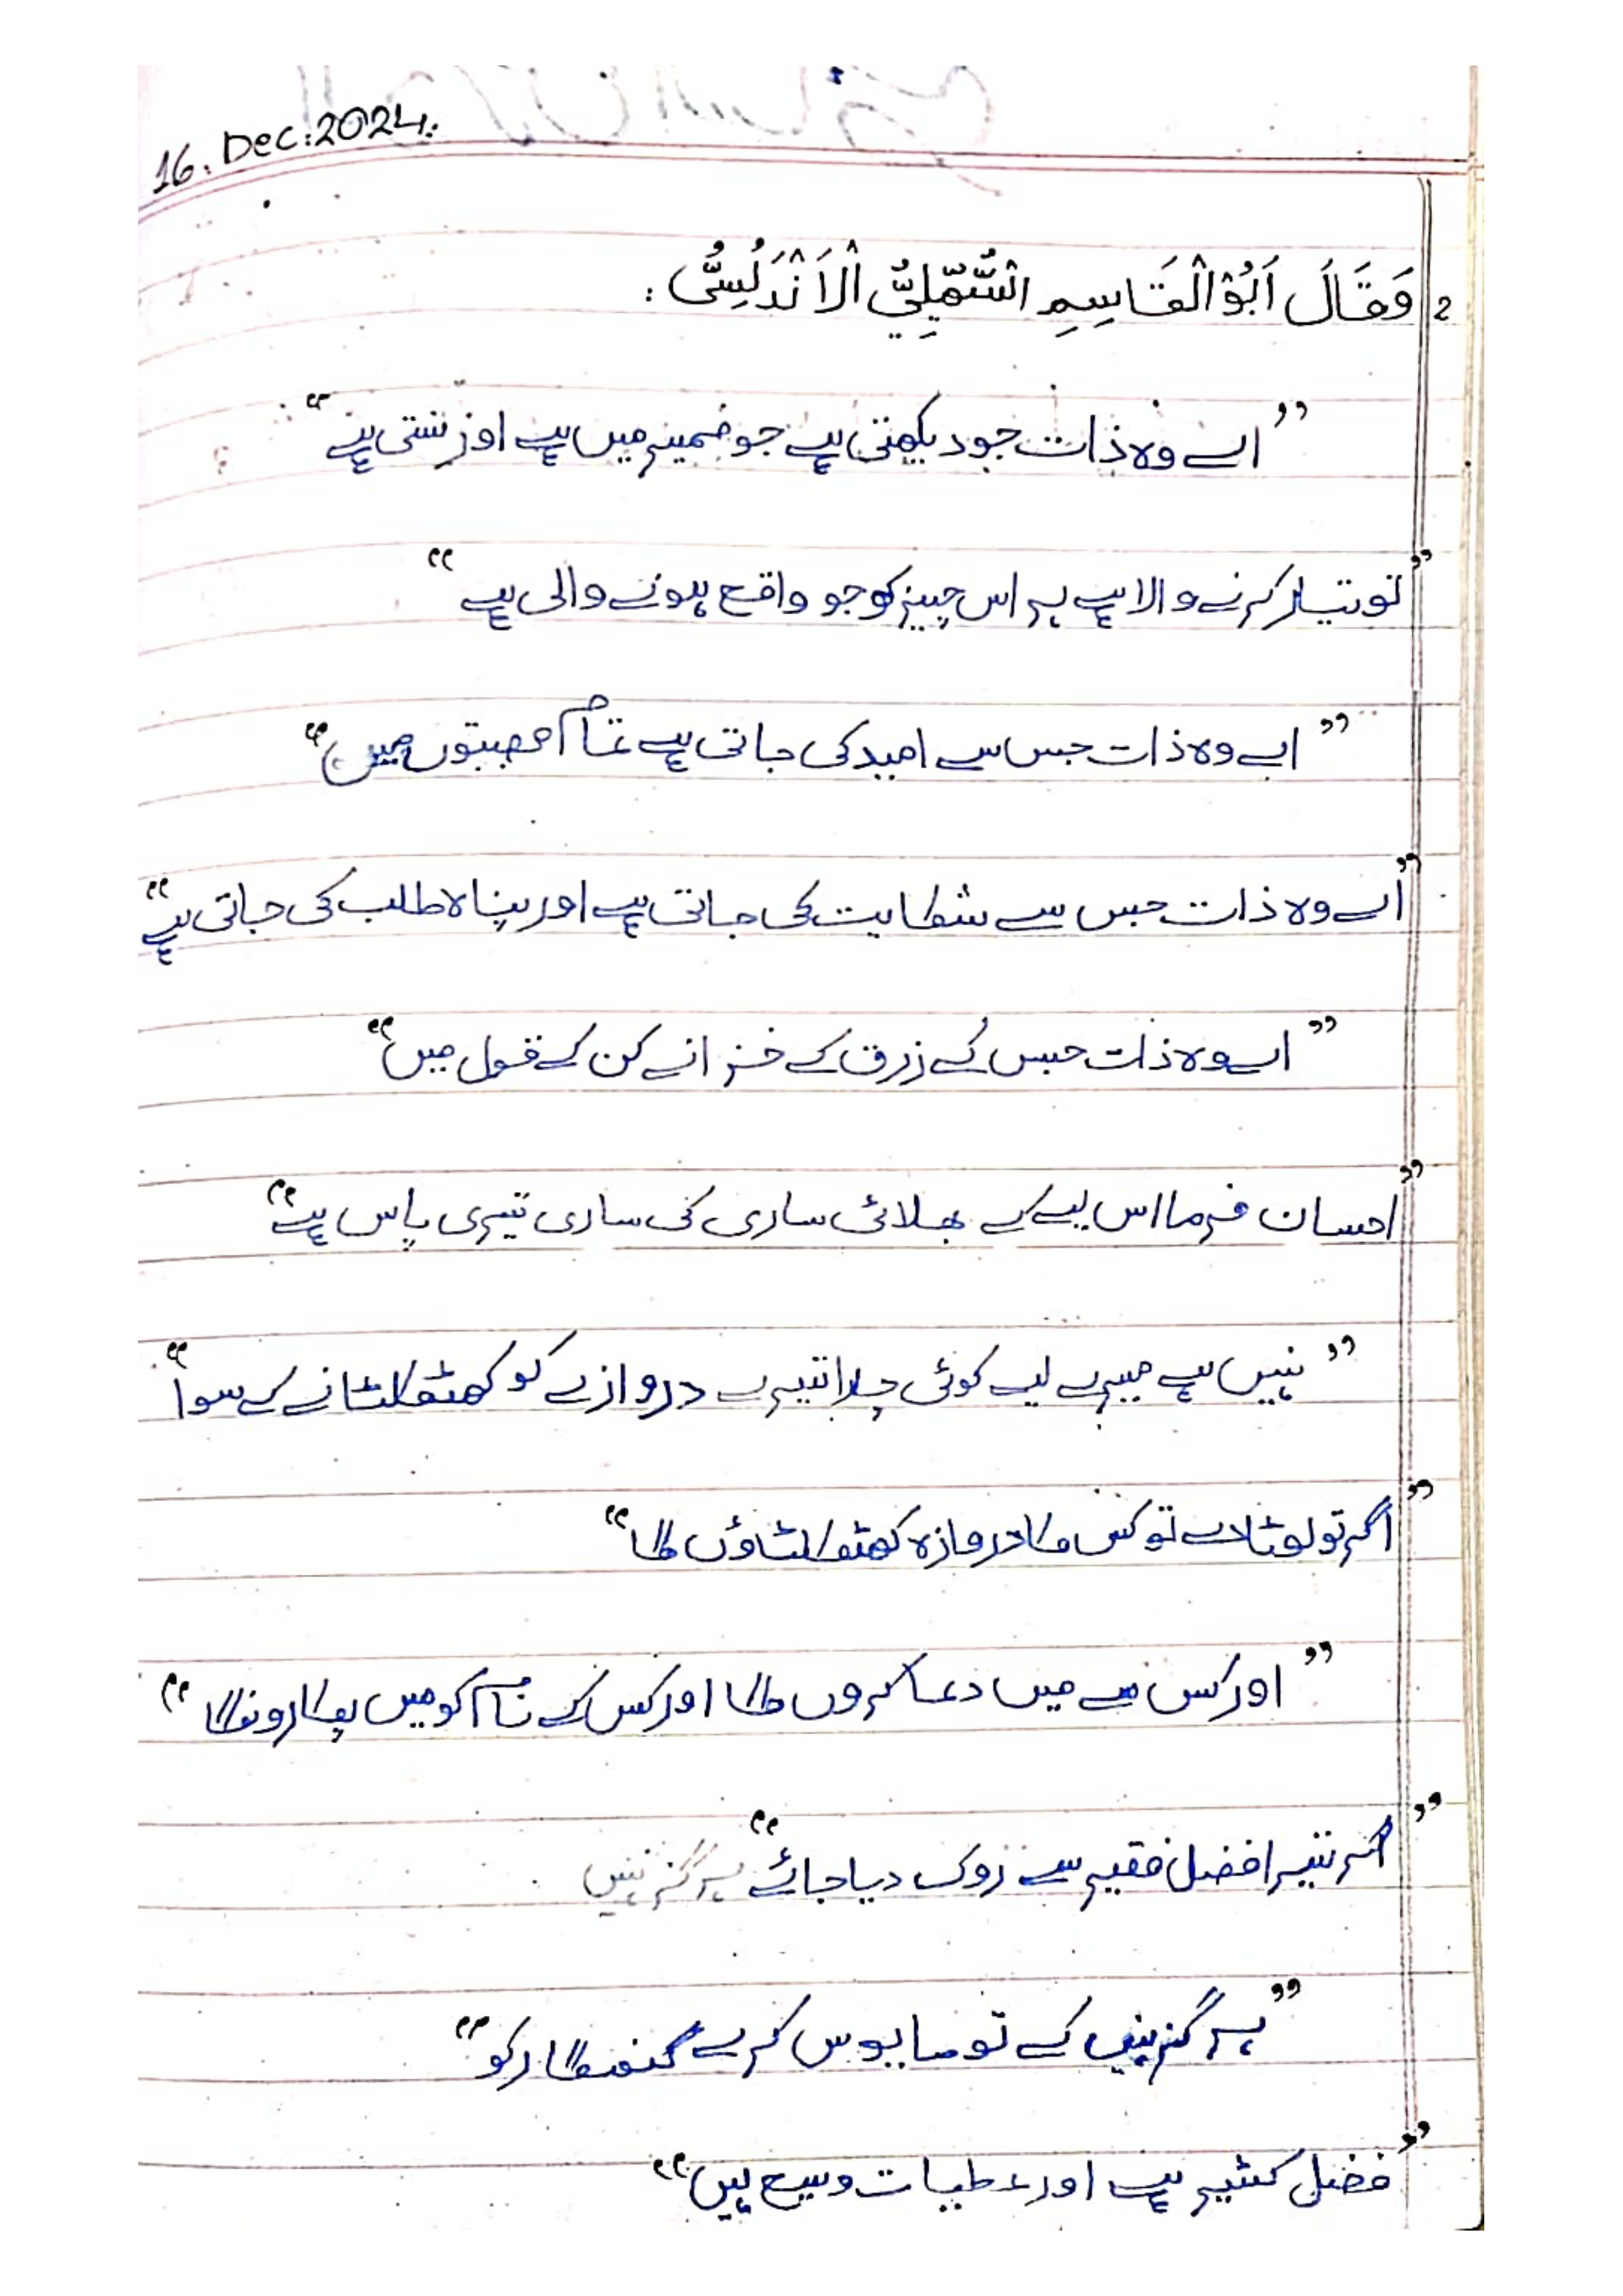 16. Dec:2024:
2 وَقَالَ اَبُوْالْقَاسِمِ السُّهَيْلِيُّ الْاَنْدَلُسِيُّ :
”اے وہ ذات جو دیکھتی ہے جو ضمیر میں ہے اور سنتی ہے“
”تو تیار کرنے والا ہے ہر اس چیز کو جو واقع ہونے والی ہے“
”اے وہ ذات جس سے امید کی جاتی ہے تمام مصیبتوں میں“
”اے وہ ذات جس سے شکایت کی جاتی ہے اور پناہ طلب کی جاتی ہے“
”اے وہ ذات جس کے زرق کے خزانے کن کے قول میں“
”احسان فرما اس لیے کے بھلائی ساری کی ساری تیری پاس ہے“
”نہیں ہے میرے لیے کوئی چارا تیرے دروازے کو کھٹکھٹانے کے سوا“
”اگر تو لوٹا دے تو کس کا دروازہ کھٹکھٹاؤں گا“
”اور کس سے میں دعا کروں گا اور کس کے نام کو میں پکارونگا“
”اگر تیرا فضل فقیر سے روک دیا جائے“ ہرگز نہیں
”ہرگز نہیں کے تو مایوس کرے گنہگار کو“
”فضل کثیر ہے اور عطیات وسیع ہیں“